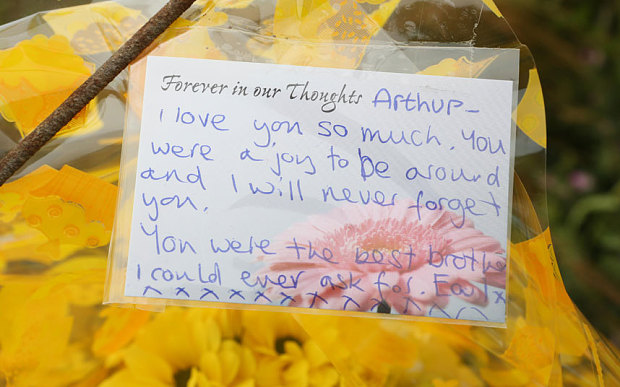 Forever in our Thoughts Arthur -
I love you so much. You
were a joy to be around
and I will never forget
you.
You were the best brother
I could ever ask for. Earl x
x x x x x x x x x x x x x